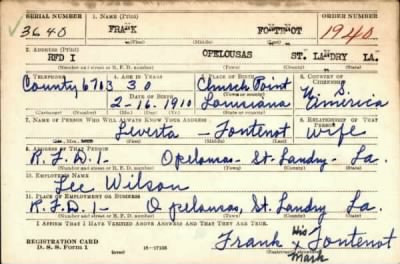 SERIAL NUMBER 1. NAME (Print) ORDER NUMBER
3640 FRANK FONTENOT 1940
(First) (Middle) (Last)
2. ADDRESS (Print)
RFD I OPELOUSAS ST. LANDRY LA.
(Number and street or R. F. D. number) (Town) (County) (State)
3. TELEPHONE 4. AGE IN YEARS 5. PLACE OF BIRTH 6. COUNTRY OF CITIZENSHIP
County 6703 30 Church Point U. S.
DATE OF BIRTH
2-16-1910 Louisiana America
7. NAME OF PERSON WHO WILL ALWAYS KNOW YOUR ADDRESS 8. RELATIONSHIP OF THAT PERSON
Leverta - Fontenot wife
9. ADDRESS OF THAT PERSON
R.F.D.1- Opelousas - St. Landry - La.
(Number and street or R. F. D. number) (Town) (County) (State)
10. EMPLOYER'S NAME
Lee Wilson
11. PLACE OF EMPLOYMENT OR BUSINESS
R.F.D.1- Opelousas, St. Landry La.
(Number and street or R. F. D. number) (Town) (County) (State)
I AFFIRM THAT I HAVE VERIFIED ABOVE ANSWERS AND THAT THEY ARE TRUE.
REGISTRATION CARD Frank his x Fontenot
D. S. S. Form 1 (over) 16-17105 mark